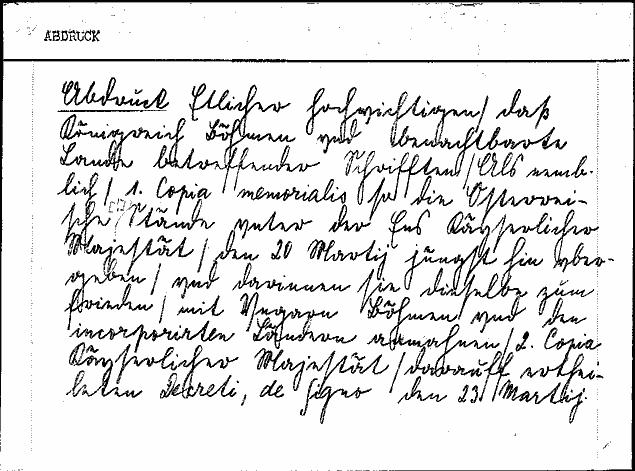 ABDRUCK
Abdruck Etlicher hochwichtigen/ daß
Königreich Böhmen vnd benachtbarte
Lande betreffender Schrifften/ Als nemb-
lich/ 1. Copia memorialis so die Osterrei-
sche Stände vnter der Ens Käyserlicher
Majestät/ den 20 Martij jüngst hin vber-
geben/ vnd darinnen sie dieselbe zum
frieden/ mit Vngarn Böhmen vnd den
incorporirten Ländern anmahnen/ 2. Copia
Käyserlicher Majestät/ darauff erthei-
leten Decreti, de Signo den 23 Martij.